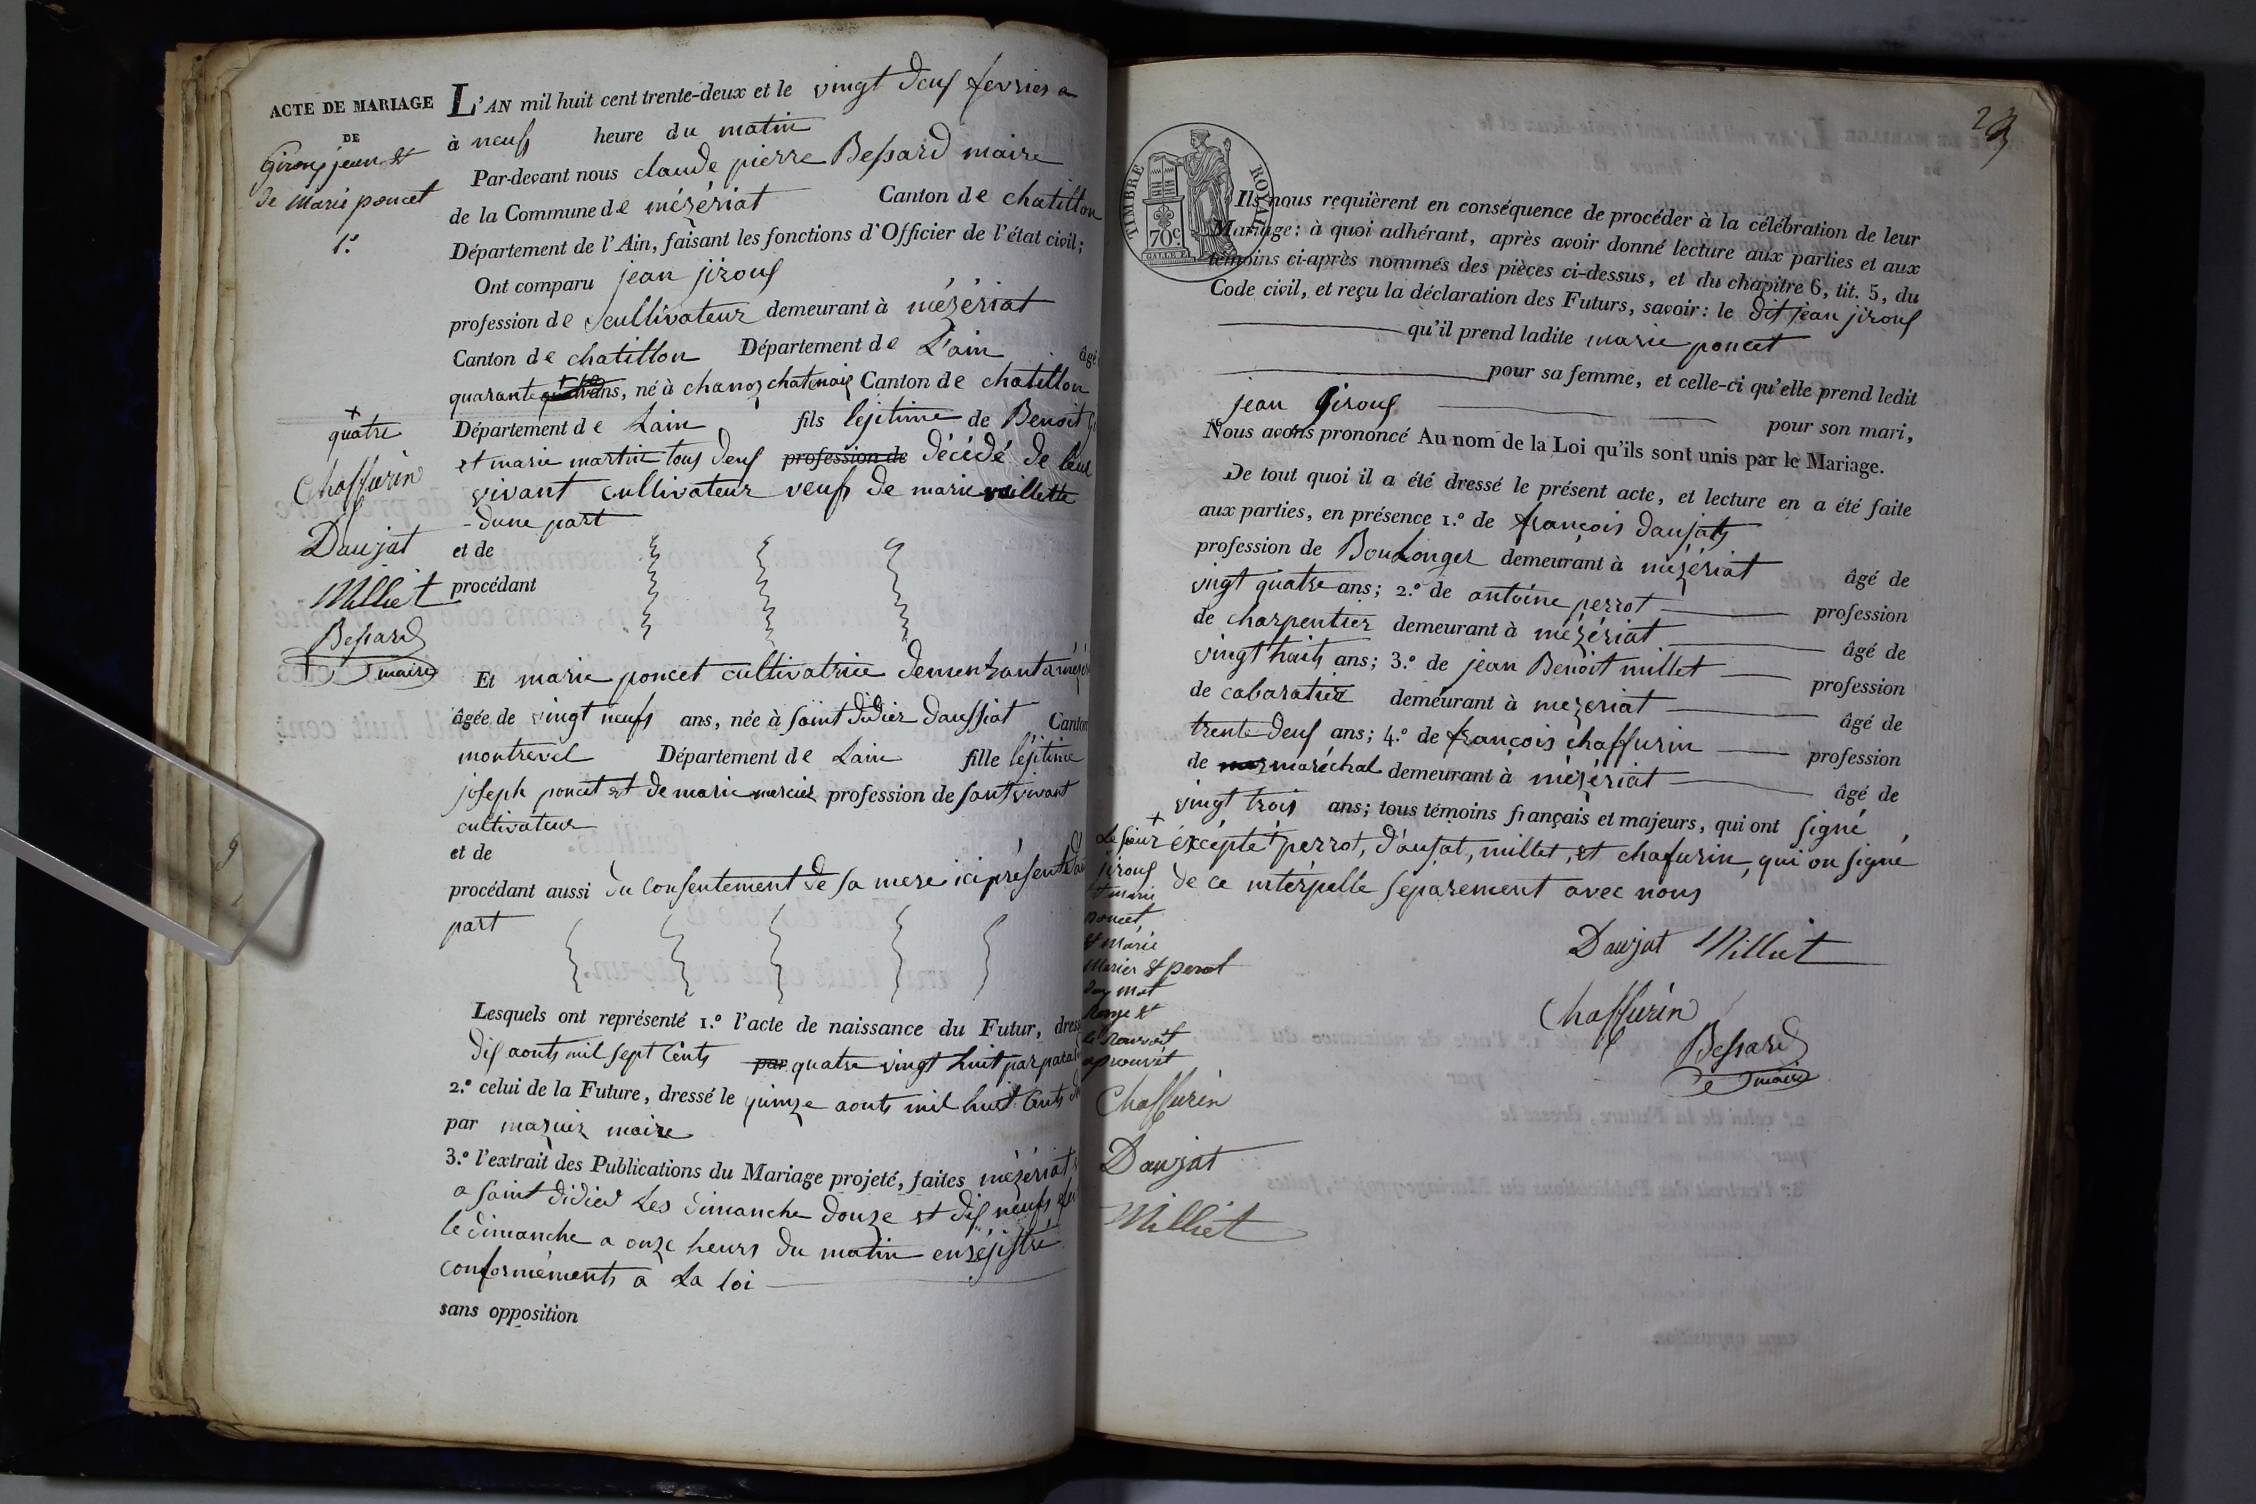 ACTE DE MARIAGE
DE
Girouf jean et
de Marie poncet
1.º
L'AN mil huit cent trente-deux et le vingt deuf fevrier a
à neuf heure du matin
Par-devant nous claude pierre Bessard maire
de la Commune de mézériat Canton de chatillon
Département de l'Ain, faisant les fonctions d'Officier de l'état civil;
Ont comparu jean jirouf
profession de cultivateur demeurant à mézériat
Canton de chatillon Département de L'ain âgé
quarante ans, né à chanoz chatenaig Canton de chatillon
Département de Lain fils lejitime de Benoit
et marie martin tous deuf profession de décédé de leur
vivant cultivateur veuf de marie vuillette
dune part
et de
procédant
+
quatre
Chaffurin
Daujat
Milliet
Bessard
maire
Et marie poncet cultivatrice demeurant a
âgée de vingt neuf ans, née à saint didier daussiat Canton
montrevel Département de Lain fille léjitime
joseph poncet et de marie mercier profession de sont vivant
cultivateur
et de
procédant aussi du consentement de sa mere ici présente
part
Lesquels ont représenté 1.º l'acte de naissance du Futur,
dif aouts mil sept Cents par quatre vingt huit par
2.º celui de la Future, dressé le quinze aouts mil huit Cents
par mazuir maire
3.º l'extrait des Publications du Mariage projeté, faites mézériat
a saint didier Les dimanche douze et dif neuf
le dimanche a onze heurs du matin enrejistré
conformément a La loi
sans opposition
23
TIMBRE ROYAL
70c.
Ils nous requièrent en conséquence de procéder à la célébration de leur
Mariage: à quoi adhérant, après avoir donné lecture aux parties et aux
témoins ci-après nommés des pièces ci-dessus, et du chapitre 6, tit. 5, du
Code civil, et reçu la déclaration des Futurs, savoir: le dit jean jirouf
qu'il prend ladite marie poncet
pour sa femme, et celle-ci qu'elle prend ledit
jean Girouf pour son mari,
Nous avons prononcé Au nom de la Loi qu'ils sont unis par le Mariage.
De tout quoi il a été dressé le présent acte, et lecture en a été faite
aux parties, en présence 1.º de françois daujat
profession de Boulonger demeurant à mézériat âgé de
vingt quatre ans; 2.º de antoine perrot profession
de charpentier demeurant à mézériat âgé de
vingt huit ans; 3.º de jean Benoit millet profession
de cabaratier demeurant à mezeriat âgé de
trente deuf ans; 4.º de françois chaffurin profession
de maréchal demeurant à mézériat âgé de
vingt trois ans; tous témoins français et majeurs, qui ont signé
excepté + perrot, daujat, millet, et chafurin, qui on signé
de ce interpellé séparement avec nous
+
Le sieur
jirouf
et marie
poncet
et Marie
Merier et perot
mot
Ronje et
le Ranvoit
aprouvét
Chaffurin
Daujat
Milliet
Daujat Milliet
Chaffurin
Bessard
maire